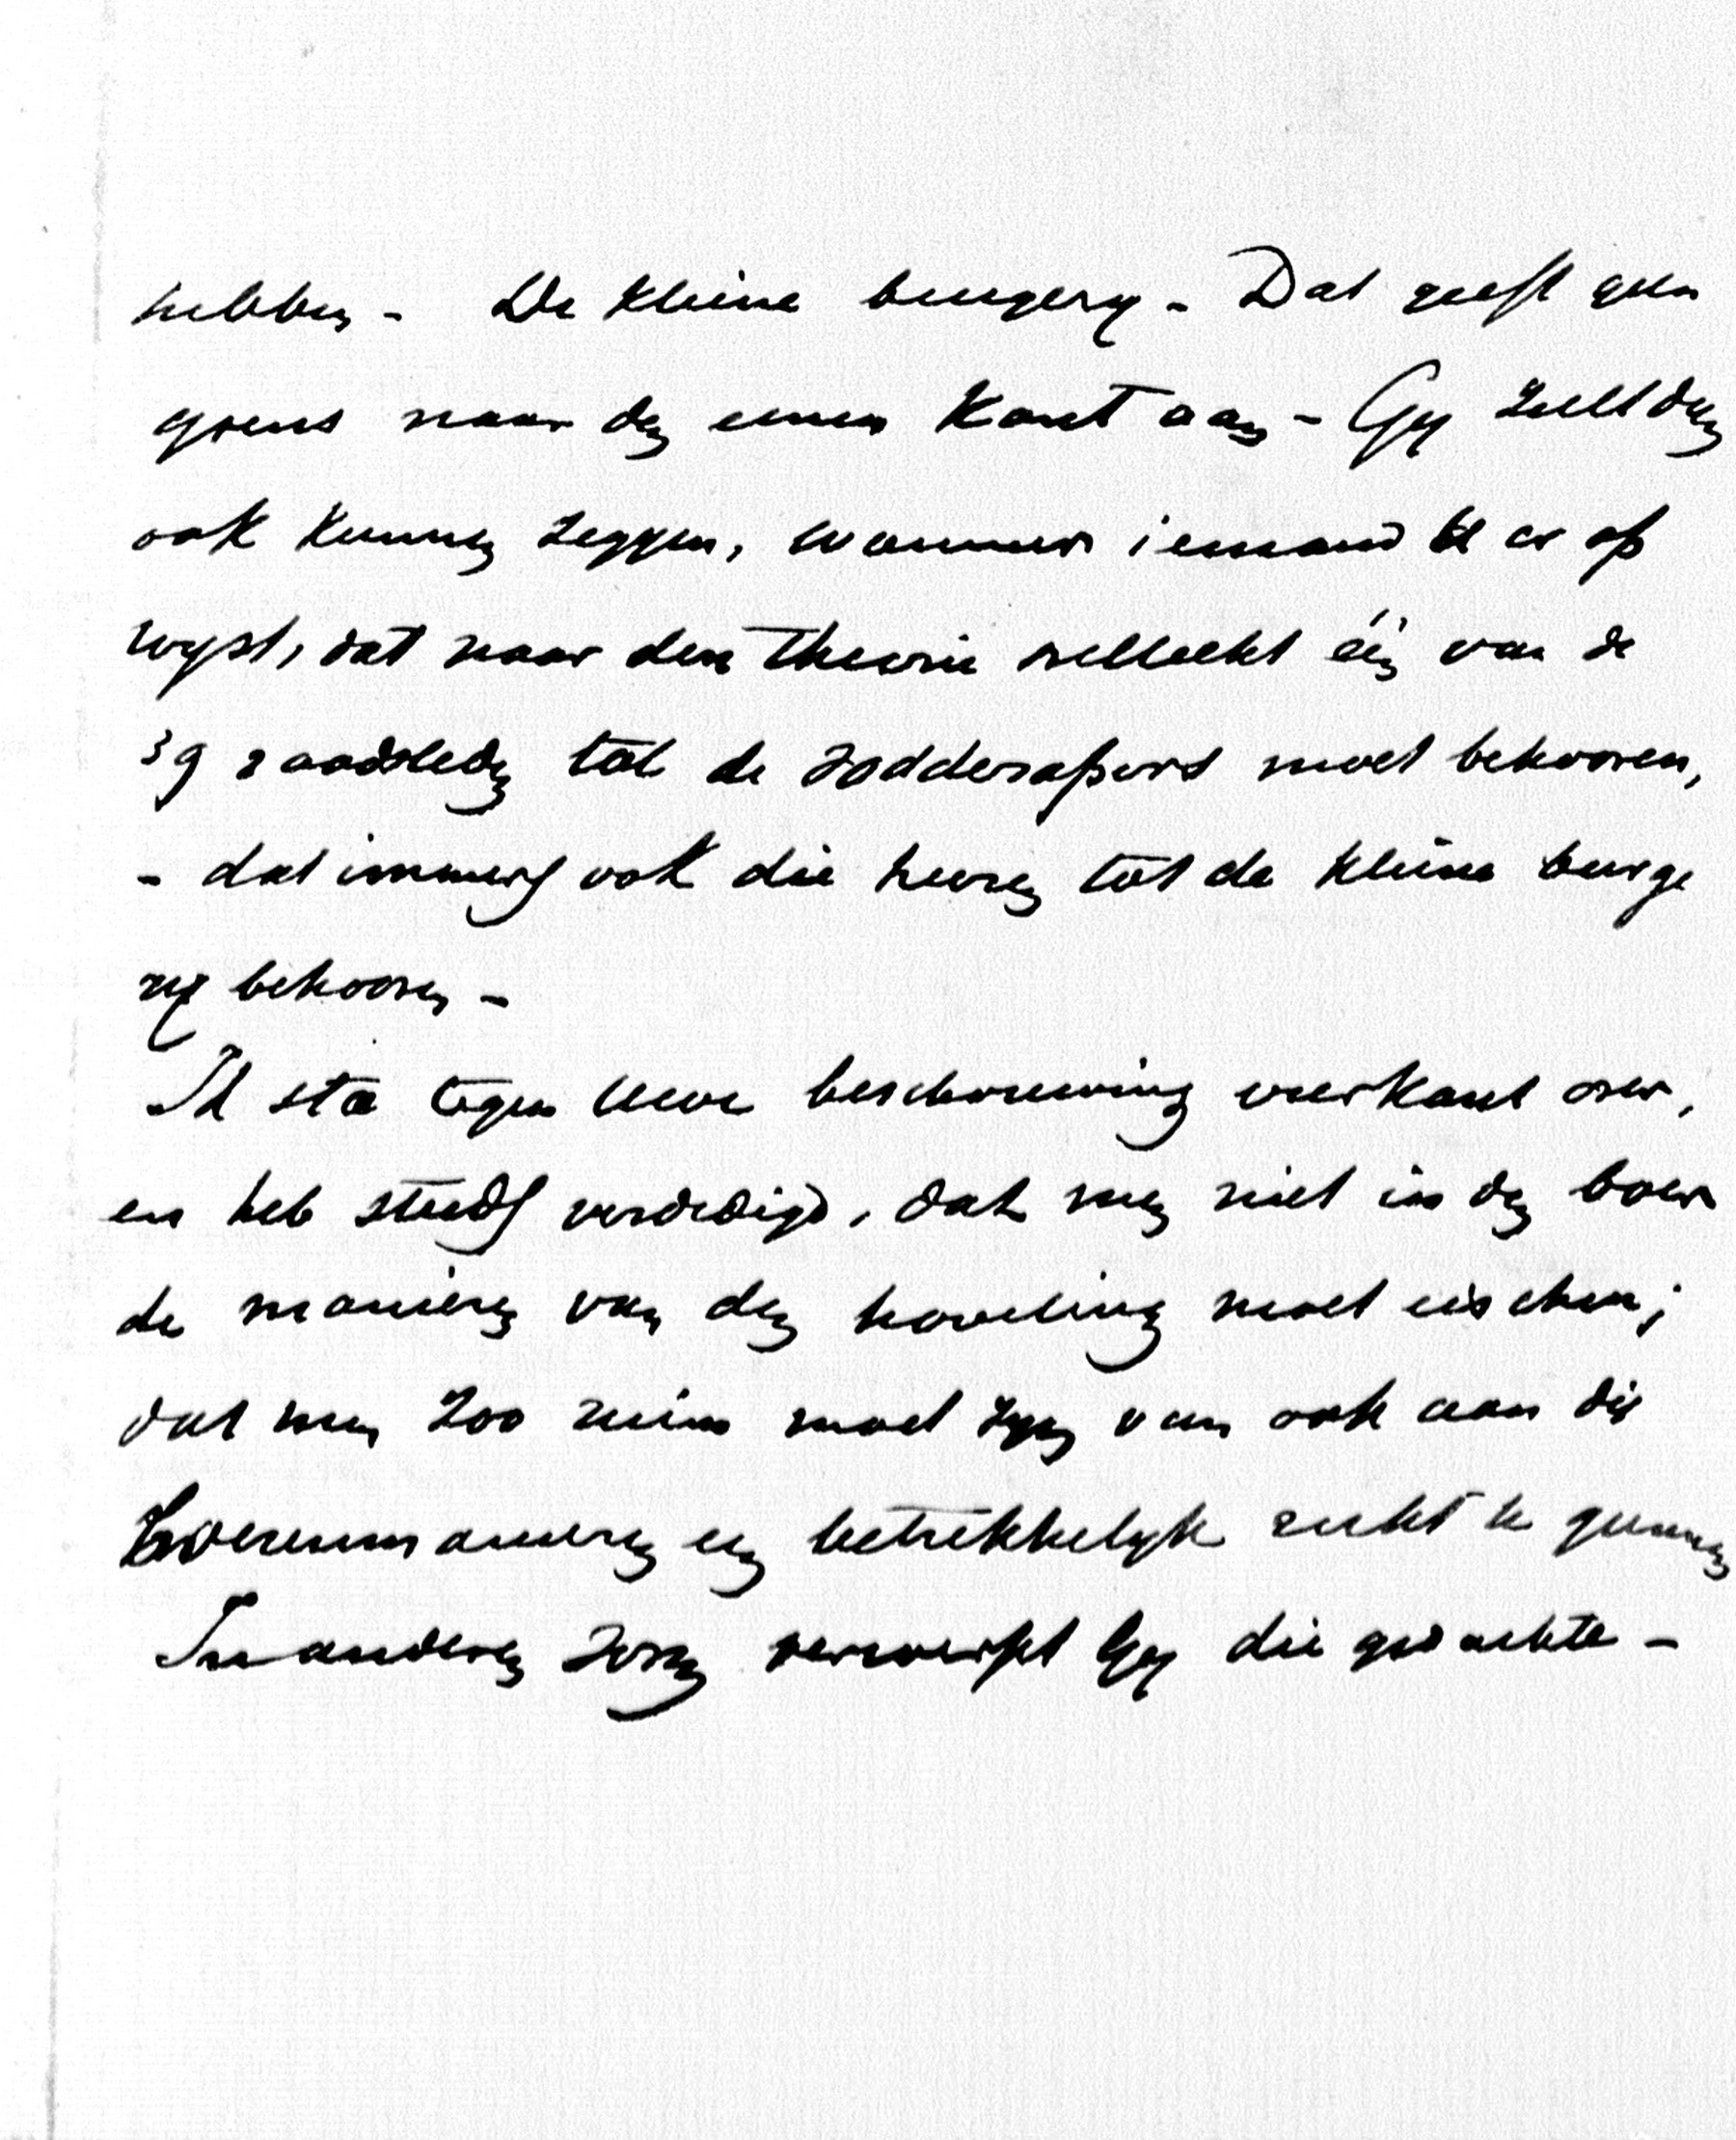 hebben - De kleine burgery - Dat geeft geen
grens naar den eenen Kant aan - Gy zult dan
ook kunnen zeggen, wanneer iemand er op
wyst, dat naar deze theorie wellicht één van de
39 raadsleden tot de voddenrapers moet behooren,
- dat immers ook die heeren tot de kleine burge
ry behooren -
Ik sta tegen Uwe beschouwing vierkant over,
en heb steeds verdedigd, dat men niet in den boer
de manieren van den hoveling moet eischen;
dat men zoo ruim moet zyn van ook aan die
boerenmanieren een betrekkelyk recht te gunnen
In anderen vorm verwerpt Gy die gedachte -